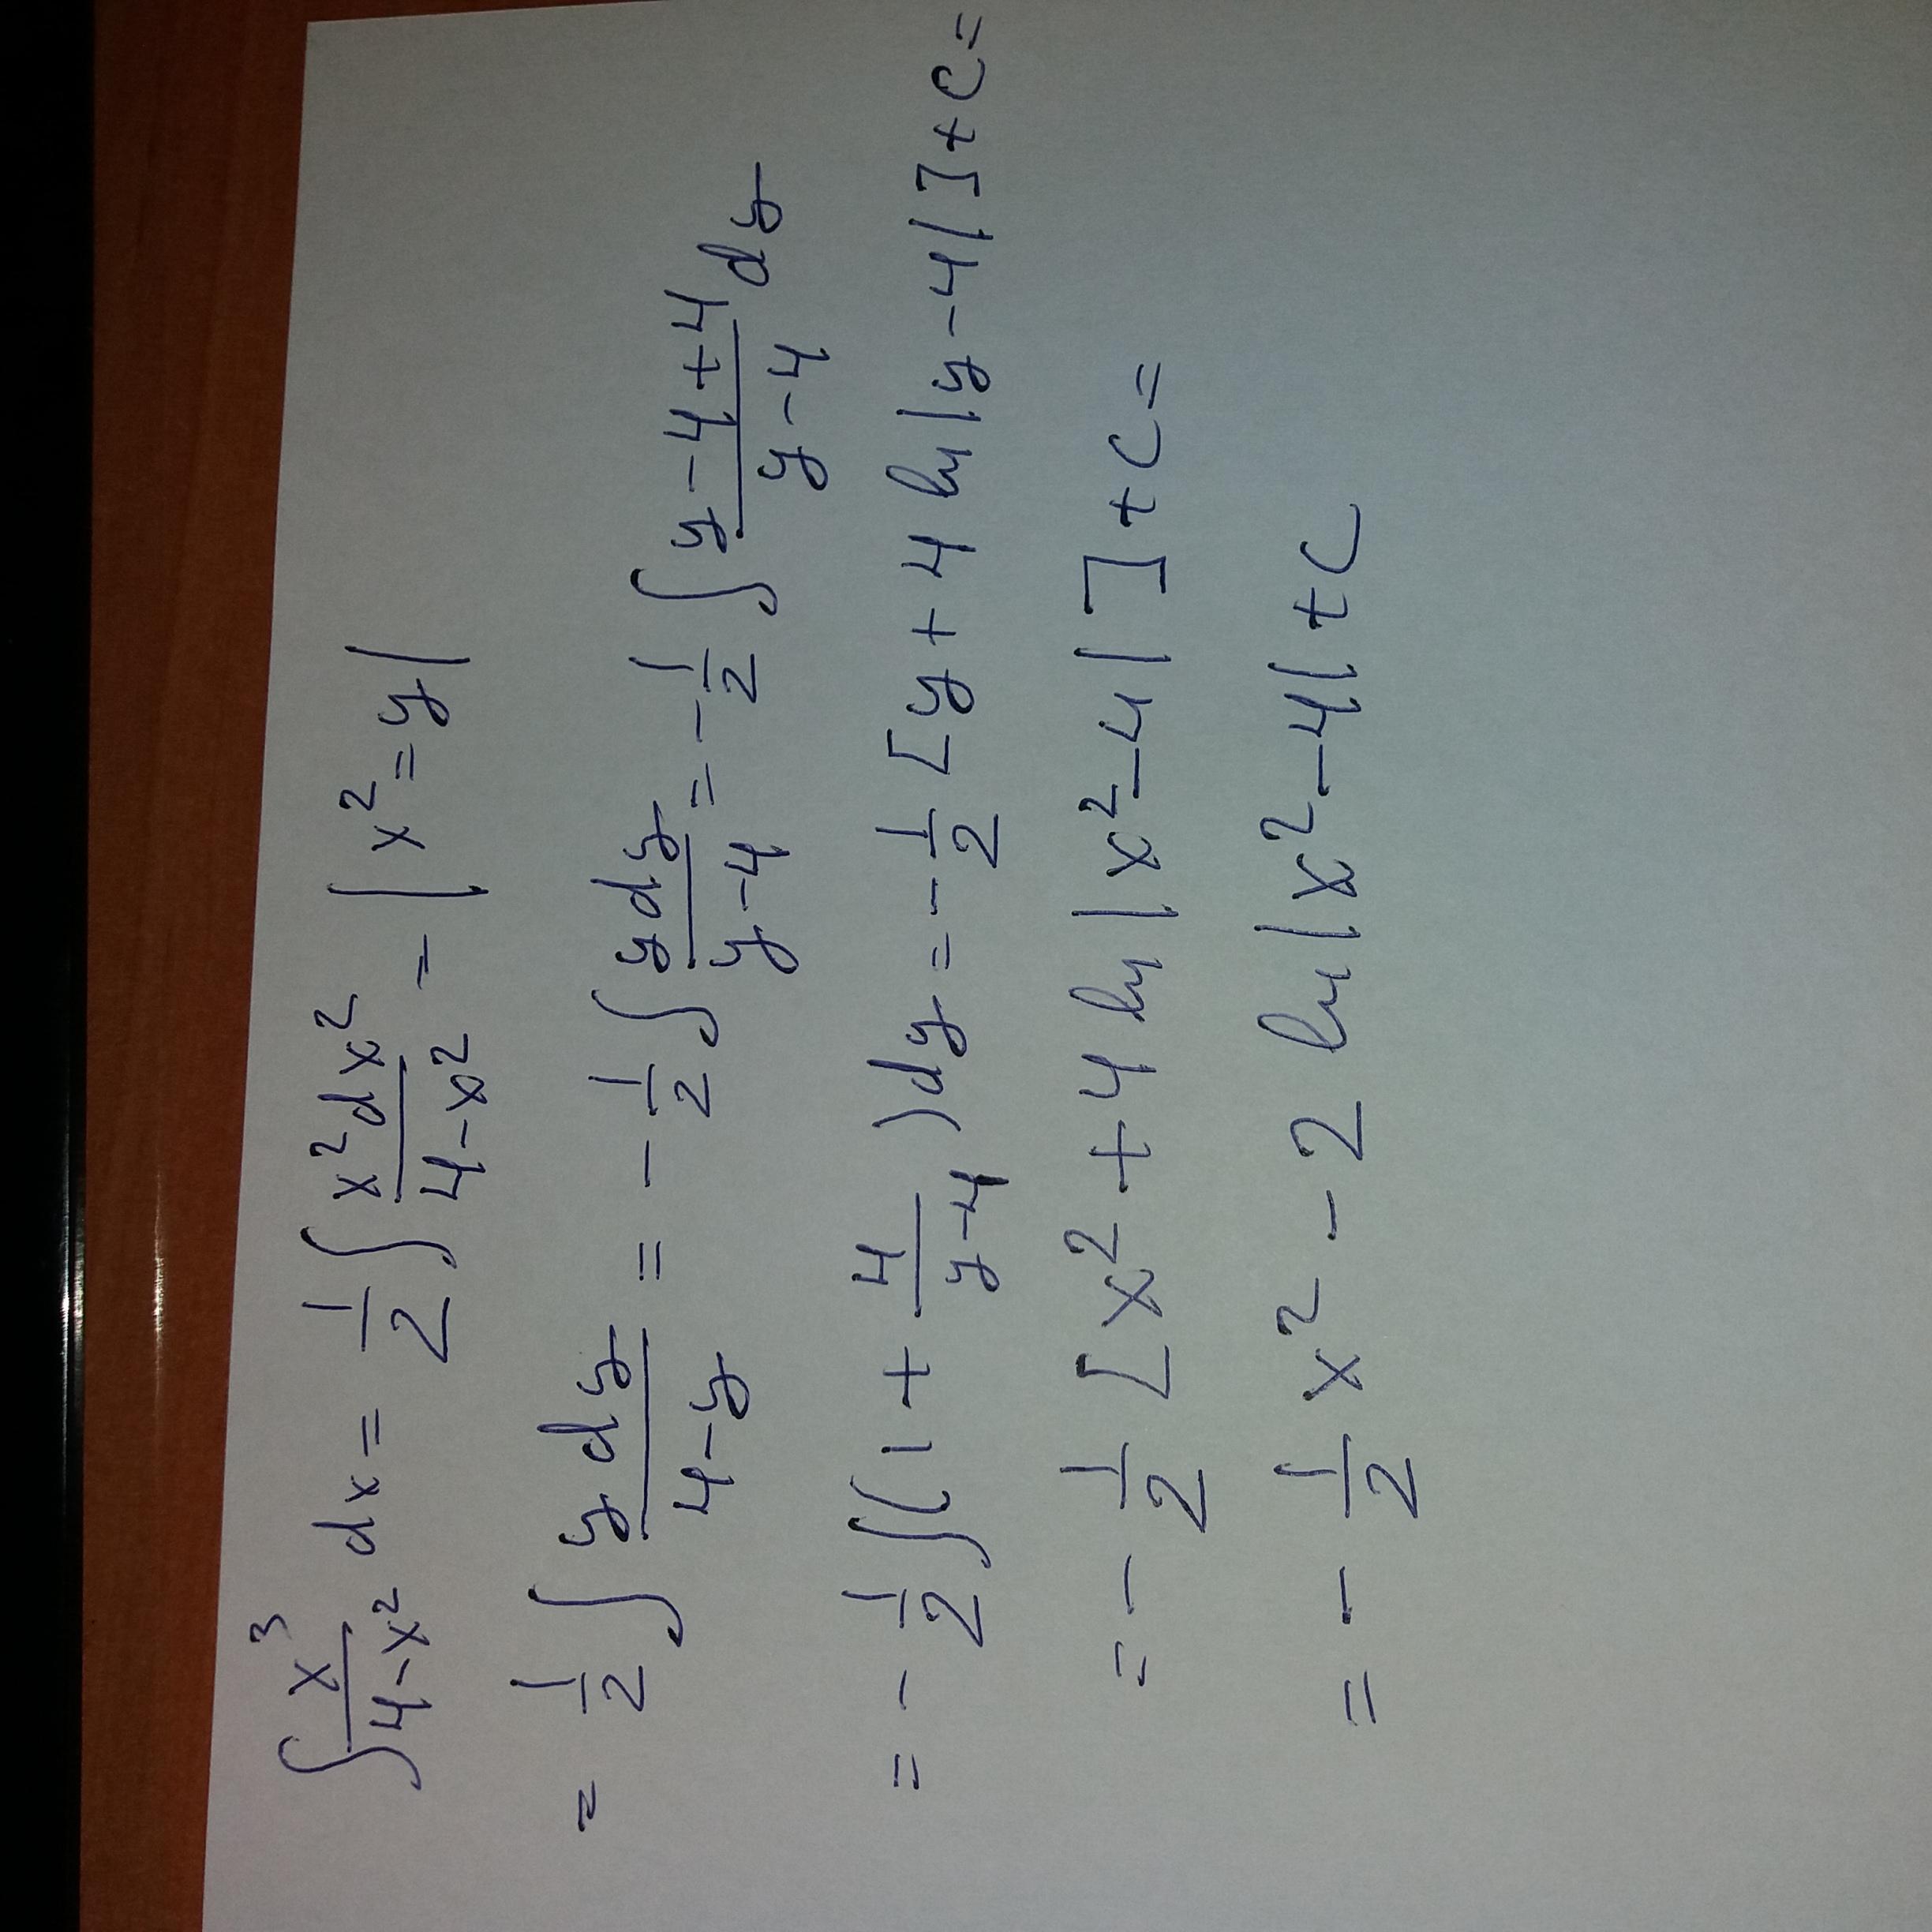 ∫ x³/(4-x²) dx = 1/2 ∫ x²dx²/(4-x²) - | x² = y |
= 1/2 ∫ y dy/(4-y) = - 1/2 ∫ y dy/(y-4) = - 1/2 ∫ (y-4+4)/(y-4) dy
= - 1/2 ∫(1 + 4/(y-4))dy = - 1/2 [y + 4 ln|y-4|] + C =
= - 1/2 [x² + 4 ln|x²-4|] + C =
= - 1/2 x² - 2 ln|x²-4| + C